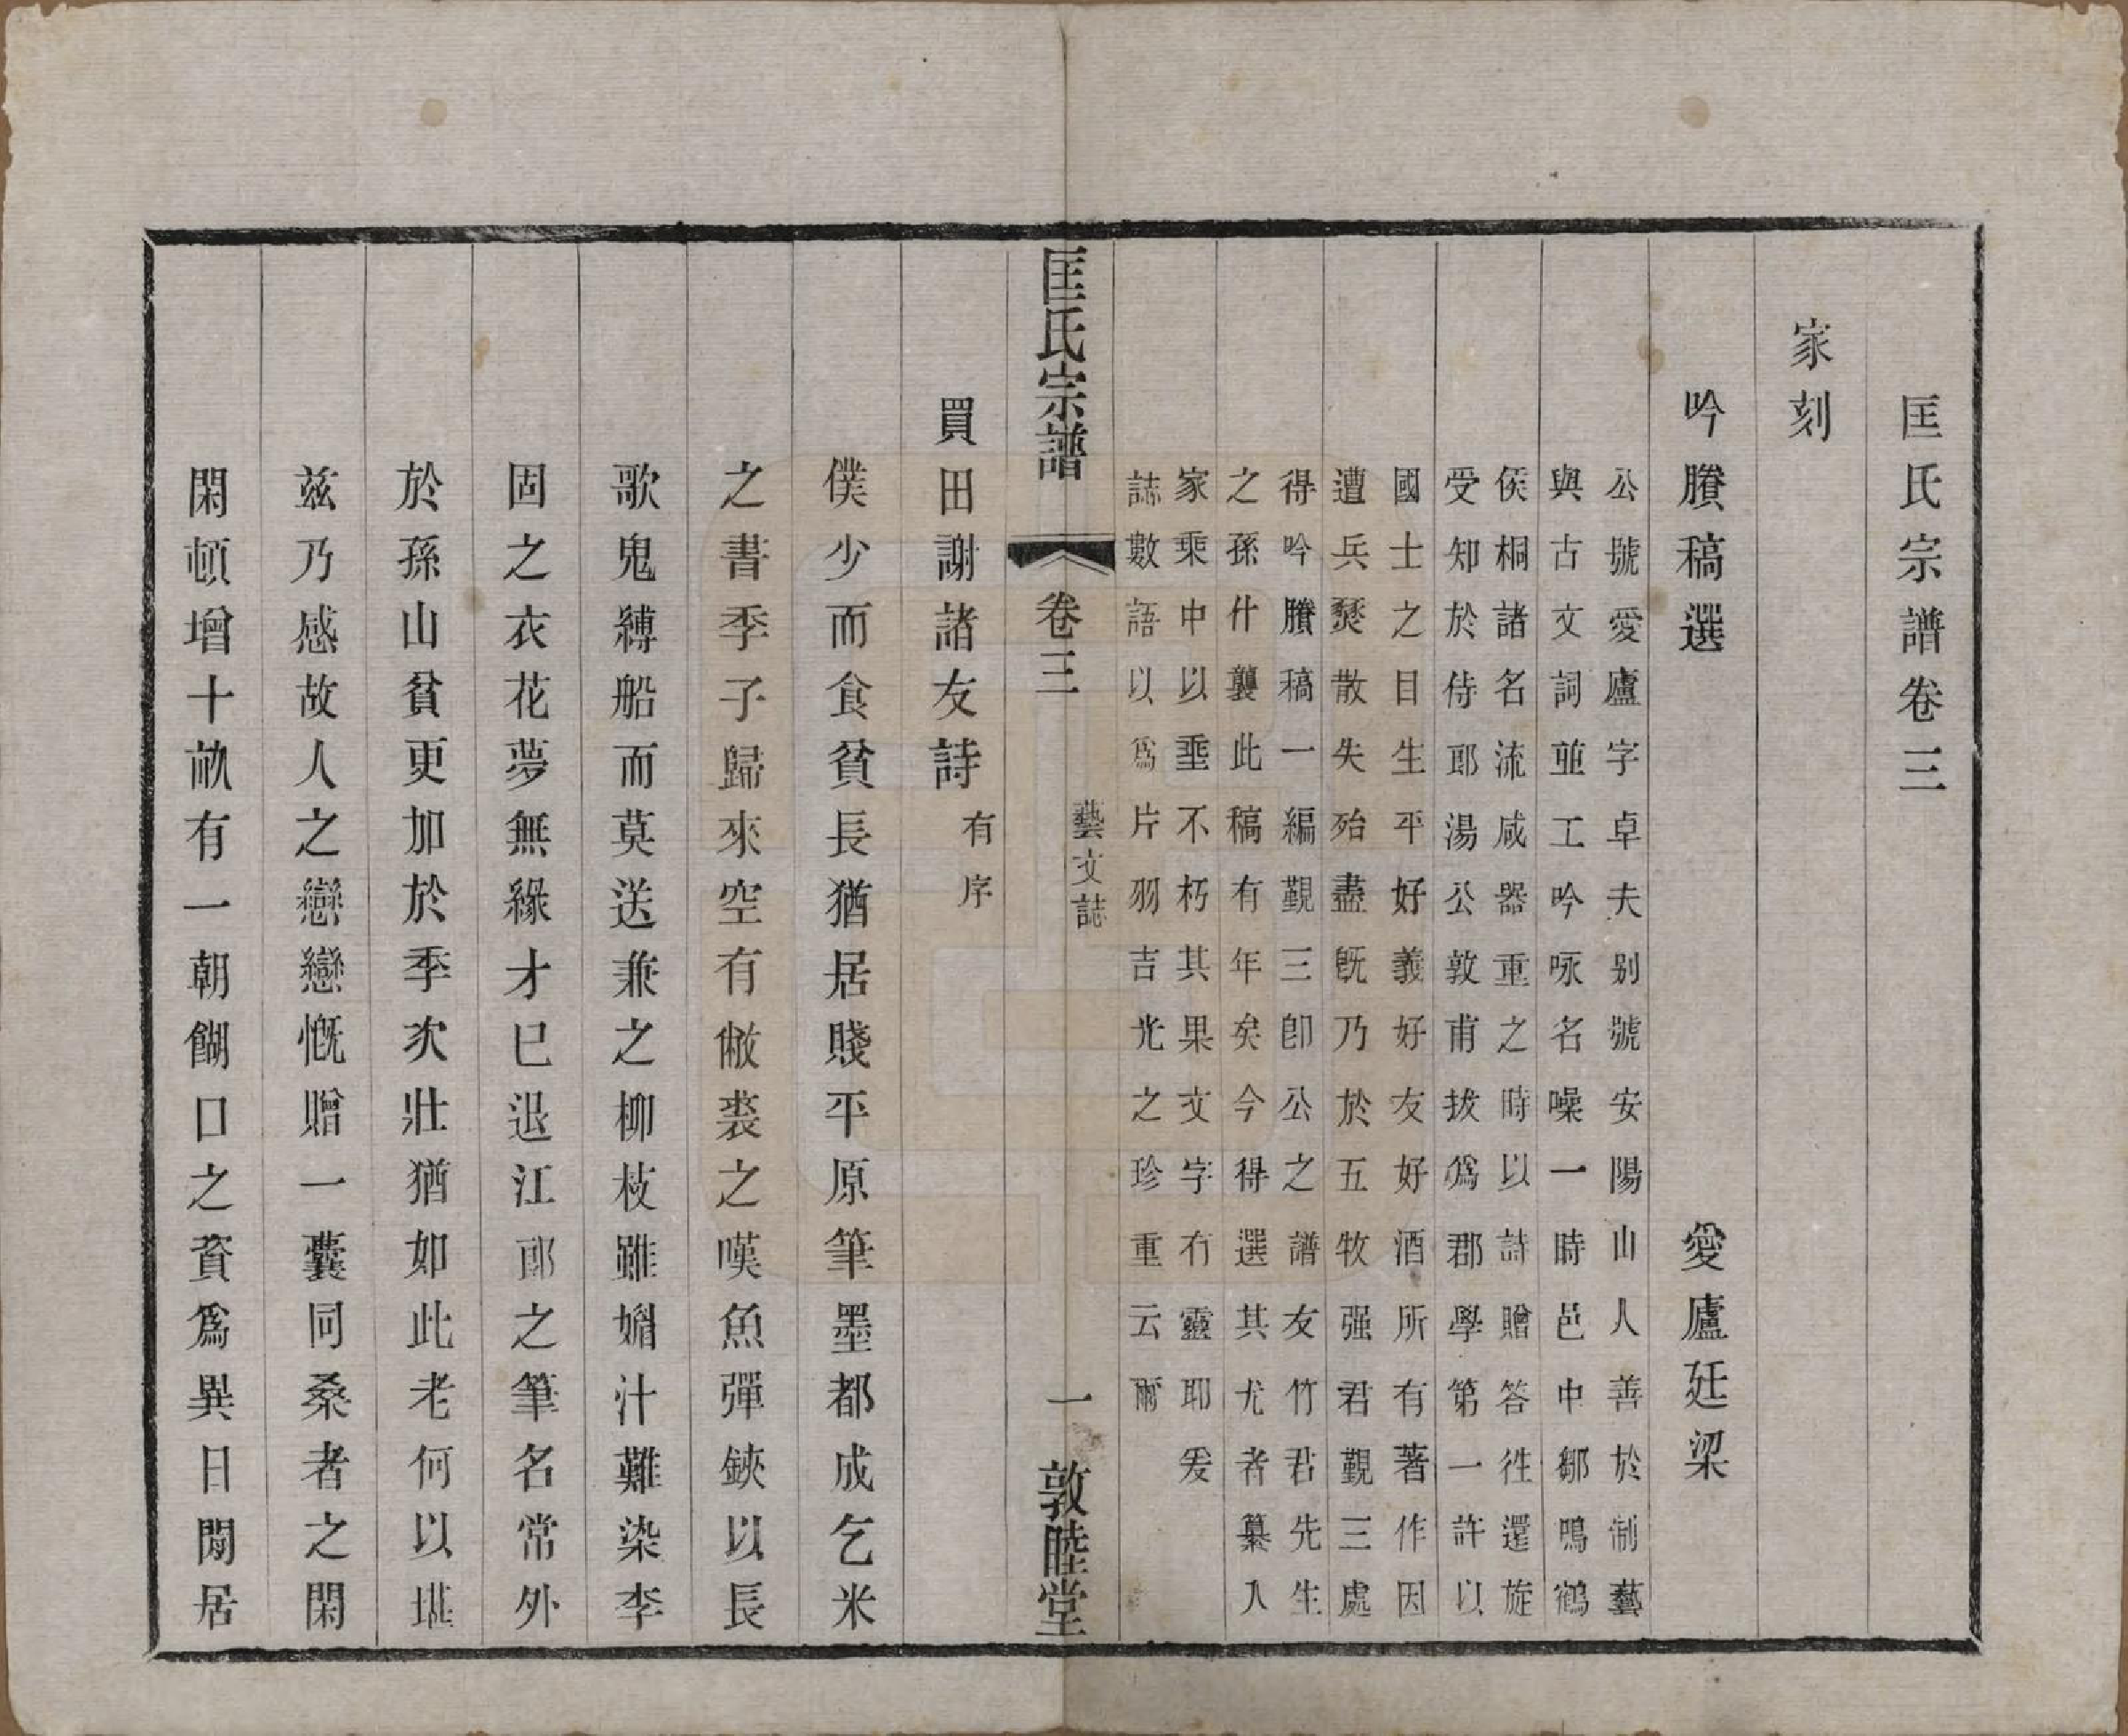 匡氏宗譜卷三
家刻
吟賸稿選　愛廬廷梁
公號愛廬字卓夫别號安陽山人善於制藝
與古文詞並工吟咏名噪一時邑中鄒鳴鶴
侯桐諸名流咸器重之時以詩贈答徃還旋
受知於侍郎湯公敦甫拔爲郡學第一許以
國士之目生平好義好友好酒所有著作因
遭兵燹散失殆盡旣乃於五牧强君覲三處
得吟賸稿一編覲三卽公之譜友竹君先生
之孫什襲此稿有年矣今得選其尤者纂入
家乘中以垂不朽其果文字冇靈耶爰
誌數語以爲片羽吉光之珍重云爾
匡氏宗譜　卷三　藝文誌　一　敦睦堂
買田謝諸友詩有序
僕少而食貧長猶居賤平原筆墨都成乞米
之書季子歸來空有敝裘之嘆魚彈鋏以長
歌鬼縛船而莫送兼之柳枝雖媚汁難染李
固之衣花夢無緣才巳退江郎之筆名常外
於孫山貧更加於季次壯猶如此老何以堪
兹乃感故人之戀戀慨贈一囊同桑者之閑
閑頓增十畝有一朝餬口之資爲異日閒居